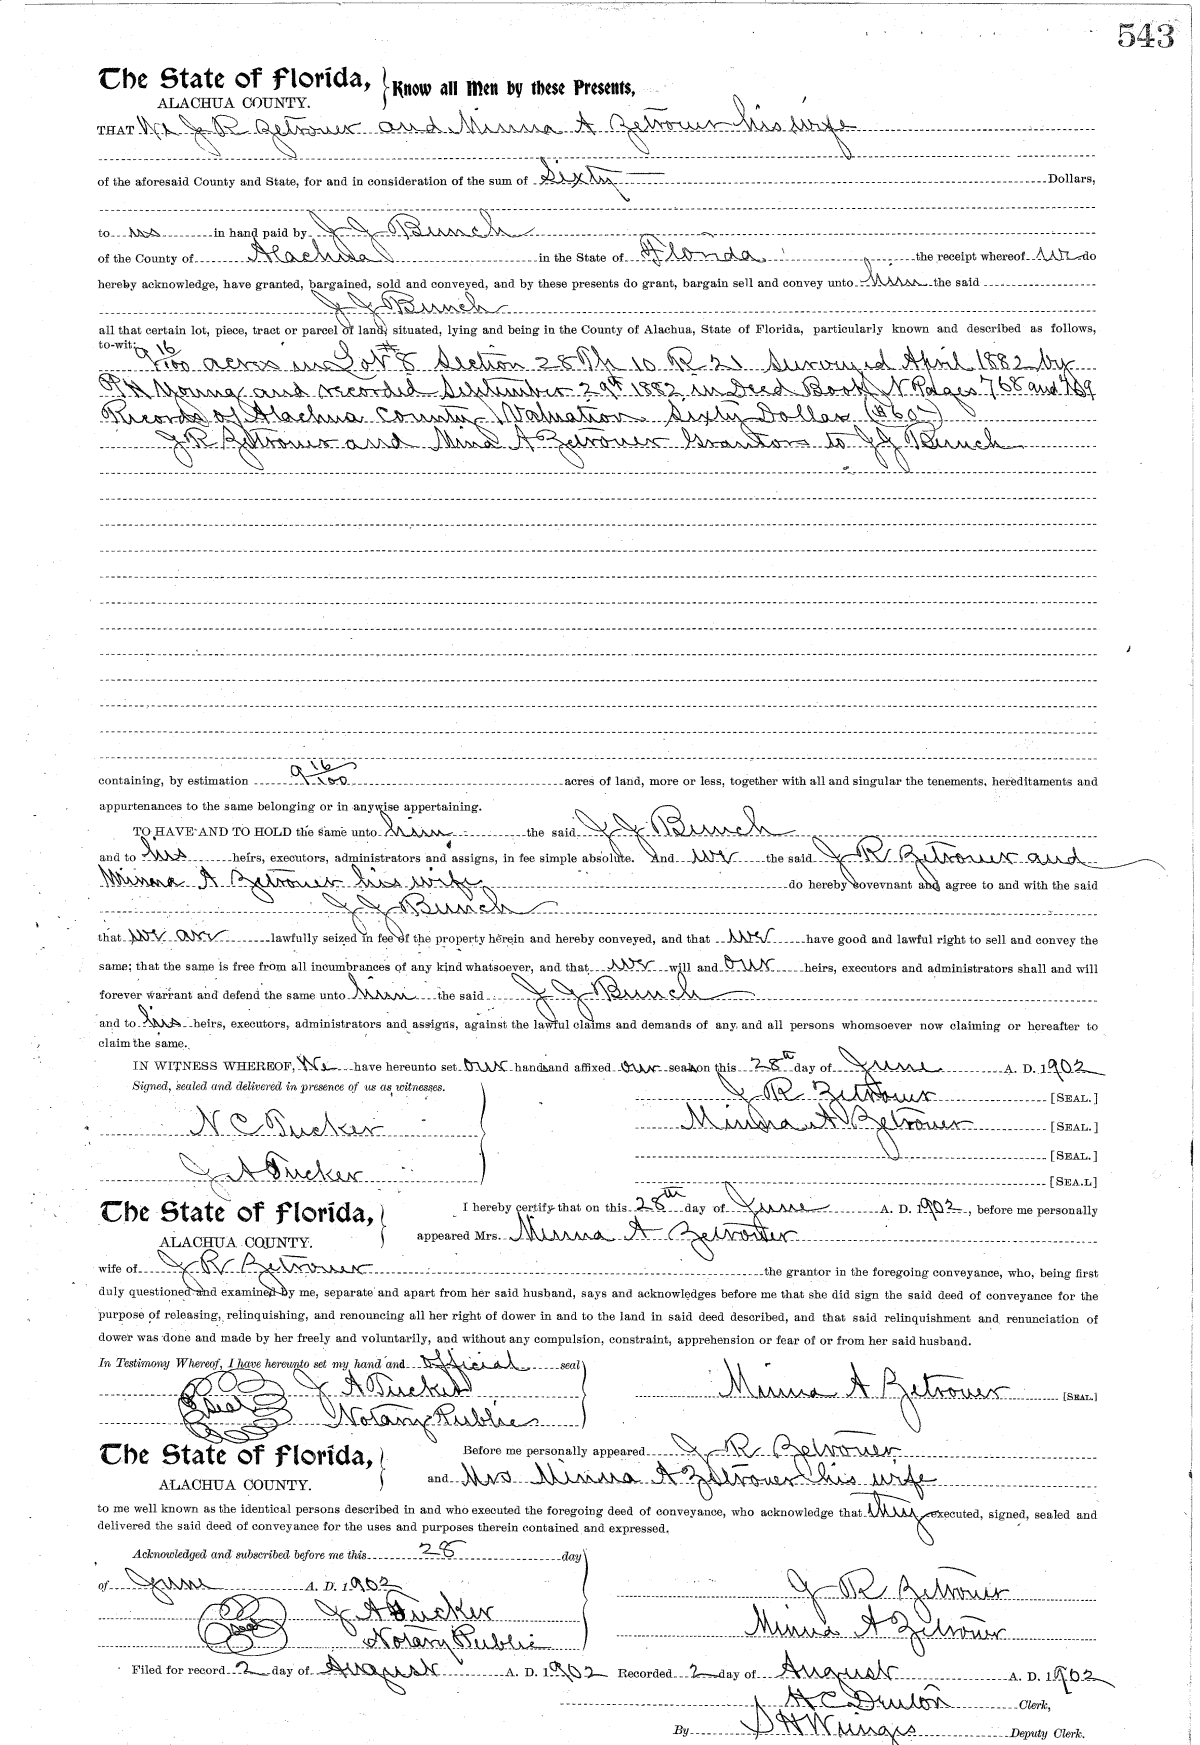 543
The State of Florida, Know all Men by these Presents,
ALACHUA COUNTY.
THAT We J R Zetrouer and Minna A Zetrouer his wife
of the aforesaid County and State, for and in consideration of the sum of Sixty Dollars,
to us in hand paid by J J Bunch
of the County of Alachua in the State of Florida the receipt whereof we do
hereby acknowledge, have granted, bargained, sold and conveyed, and by these presents do grant, bargain sell and convey unto him the said
J J Bunch
all that certain lot, piece, tract or parcel of land, situated, lying and being in the County of Alachua, State of Florida, particularly known and described as follows,
to-wit:
9 16/100 acres in Lot #8 Section 28 Tp 10 R 21 Surveyed April 1882 by
P H Young and recorded September 29th 1882 in Deed Book N Pages 768 and 769
Records of Alachua County Valuation Sixty Dollars
J R Zetrouer and Mina A Zetrouer Grantors to J J Bunch
containing, by estimation 9 16/100 acres of land, more or less, together with all and singular the tenements, hereditaments and
appurtenances to the same belonging or in anywise appertaining.
TO HAVE AND TO HOLD the same unto him the said J J Bunch
and to his heirs, executors, administrators and assigns, in fee simple absolute. And we the said J R Zetrouer and
Minna A Zetrouer his wife do hereby covevnant and agree to and with the said
J J Bunch
that we are lawfully seized in fee of the property herein and hereby conveyed, and that we have good and lawful right to sell and convey the
same; that the same is free from all incumbrances of any kind whatsoever, and that we will and our heirs, executors and administrators shall and will
forever warrant and defend the same unto him the said J J Bunch
and to his heirs, executors, administrators and assigns, against the lawful claims and demands of any and all persons whomsoever now claiming or hereafter to
claim the same.
IN WITNESS WHEREOF, We have hereunto set our hands and affixed our seals on this 28th day of June A. D. 1902
Signed, sealed and delivered in presence of us as witnesses.
J R Zetrouer [SEAL.]
N C Tucker Minna A Zetrouer [SEAL.]
[SEAL.]
J A Tucker [SEA.L]
The State of Florida, I hereby certify that on this 28th day of June A. D. 1902, before me personally
ALACHUA COUNTY. appeared Mrs. Minna A Zetrouer
wife of J R Zetrouer the grantor in the foregoing conveyance, who, being first
duly questioned and examined by me, separate and apart from her said husband, says and acknowledges before me that she did sign the said deed of conveyance for the
purpose of releasing, relinquishing, and renouncing all her right of dower in and to the land in said deed described, and that said relinquishment and renunciation of
dower was done and made by her freely and voluntarily, and without any compulsion, constraint, apprehension or fear of or from her said husband.
In Testimony Whereof, I have hereunto set my hand and official seal
Seal J A Tucker Minna A Zetrouer [SEAL.]
Notary Public
The State of Florida, Before me personally appeared J R Zetrouer
ALACHUA COUNTY. and Mrs Minna A Zetrouer his wife
to me well known as the identical persons described in and who executed the foregoing deed of conveyance, who acknowledge that they executed, signed, sealed and
delivered the said deed of conveyance for the uses and purposes therein contained and expressed.
Acknowledged and subscribed before me this 28 day
of June A. D. 1902 J R Zetrouer
Seal J A Tucker Minna A Zetrouer
Notary Public
Filed for record 2 day of August A. D. 1902 Recorded 2 day of August A. D. 1902
H C Denton Clerk,
By S H Wienges Deputy Clerk.